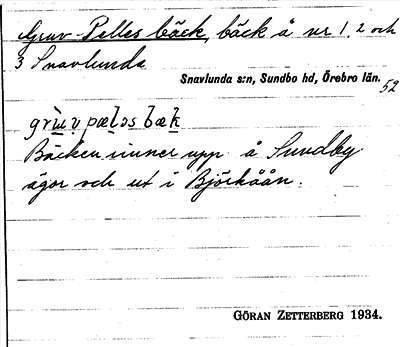 Gruv-Pelles bäck, bäck å nr 1, 2 och
3 Snavlunda
Snavlunda s:n, Sundbo hd, Örebro län.
52
grùv pæləs bæk
Bäcken rinner upp å Sundby
ägor och ut i Björkåån.
GÖRAN ZETTERBERG 1934.